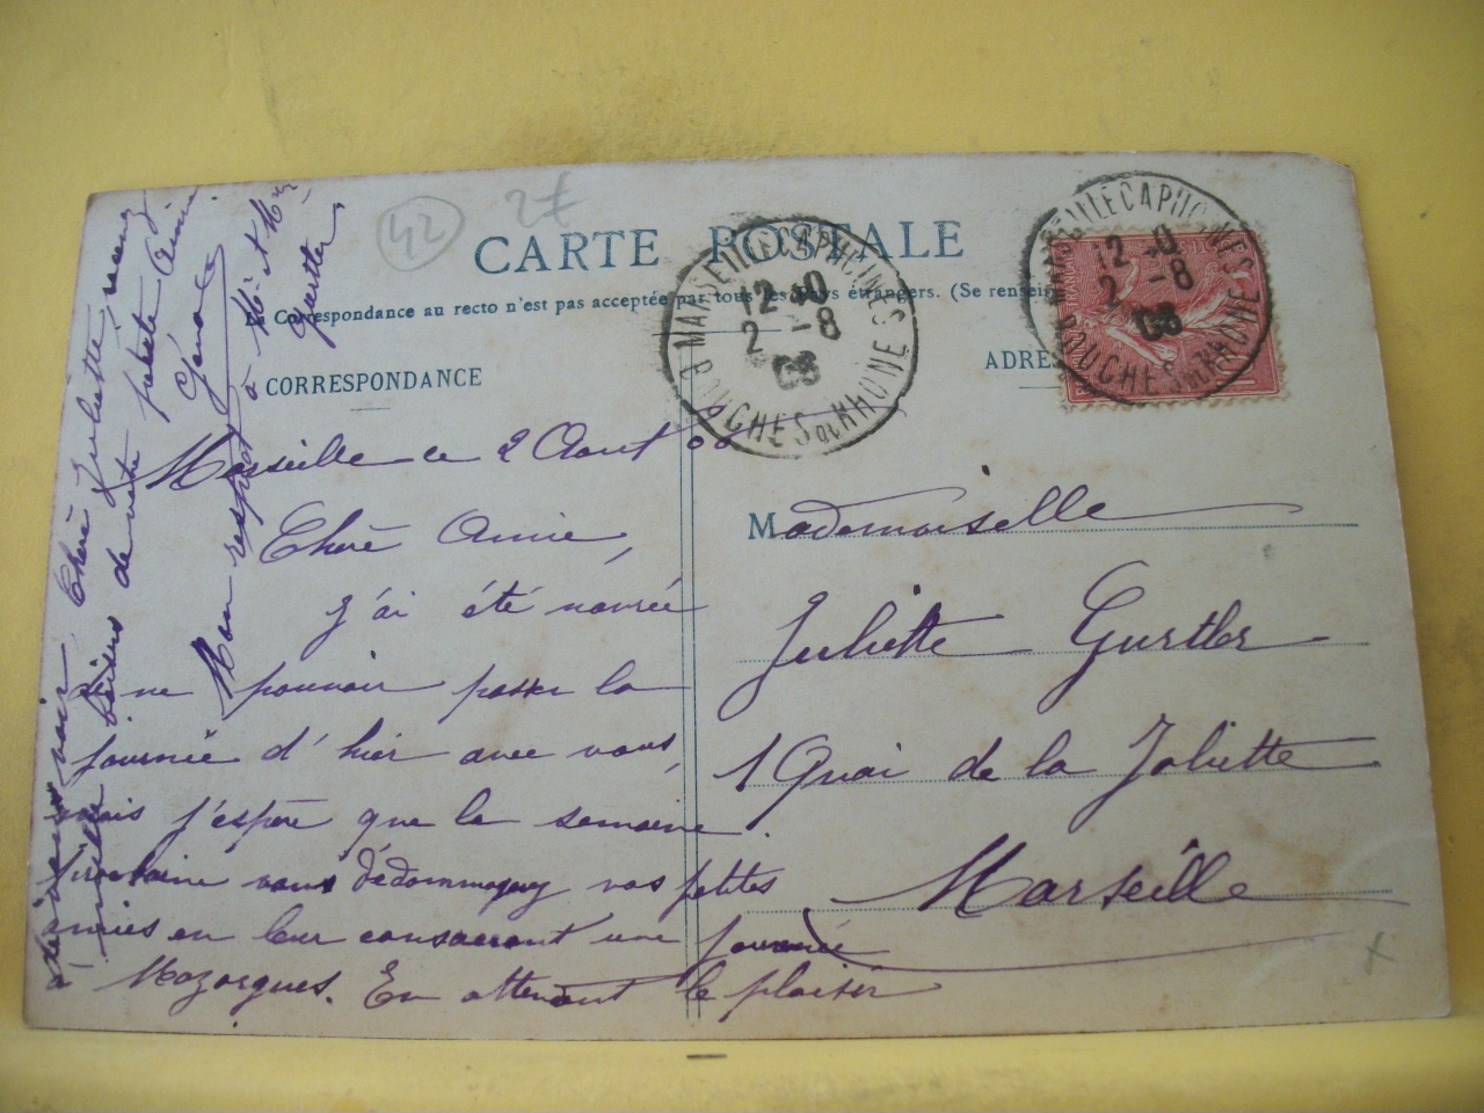 42
2€
CARTE POSTALE
La Correspondance au recto n'est pas acceptée par tous les Pays étrangers. (Se renseig
CORRESPONDANCE
ADRE
MARSEILLE CAPUCINES
12 40
2 -8
08
BOUCHES DU RHONE
MARSEILLE CAPUCINES
12 40
2 -8
08
BOUCHES DU RHONE
Marseille le 2 Aout 08
Chère Amie,
J'ai été navrée
de ne pouvoir passer la
journée d'hier avec vous,
mais j'espère que la semaine
prochaine vous dédommagerez vos petites
amies en leur consacrant une journée
à Mazargues. En attendant le plaisir
de vous voir, Chère Juliette, recevez
mille baisers de votre petite Amie
Mon respect à Mr et Mme
Gurtler
Mademoiselle
Juliette Gurtler
1 Quai de la Joliette
Marseille
x